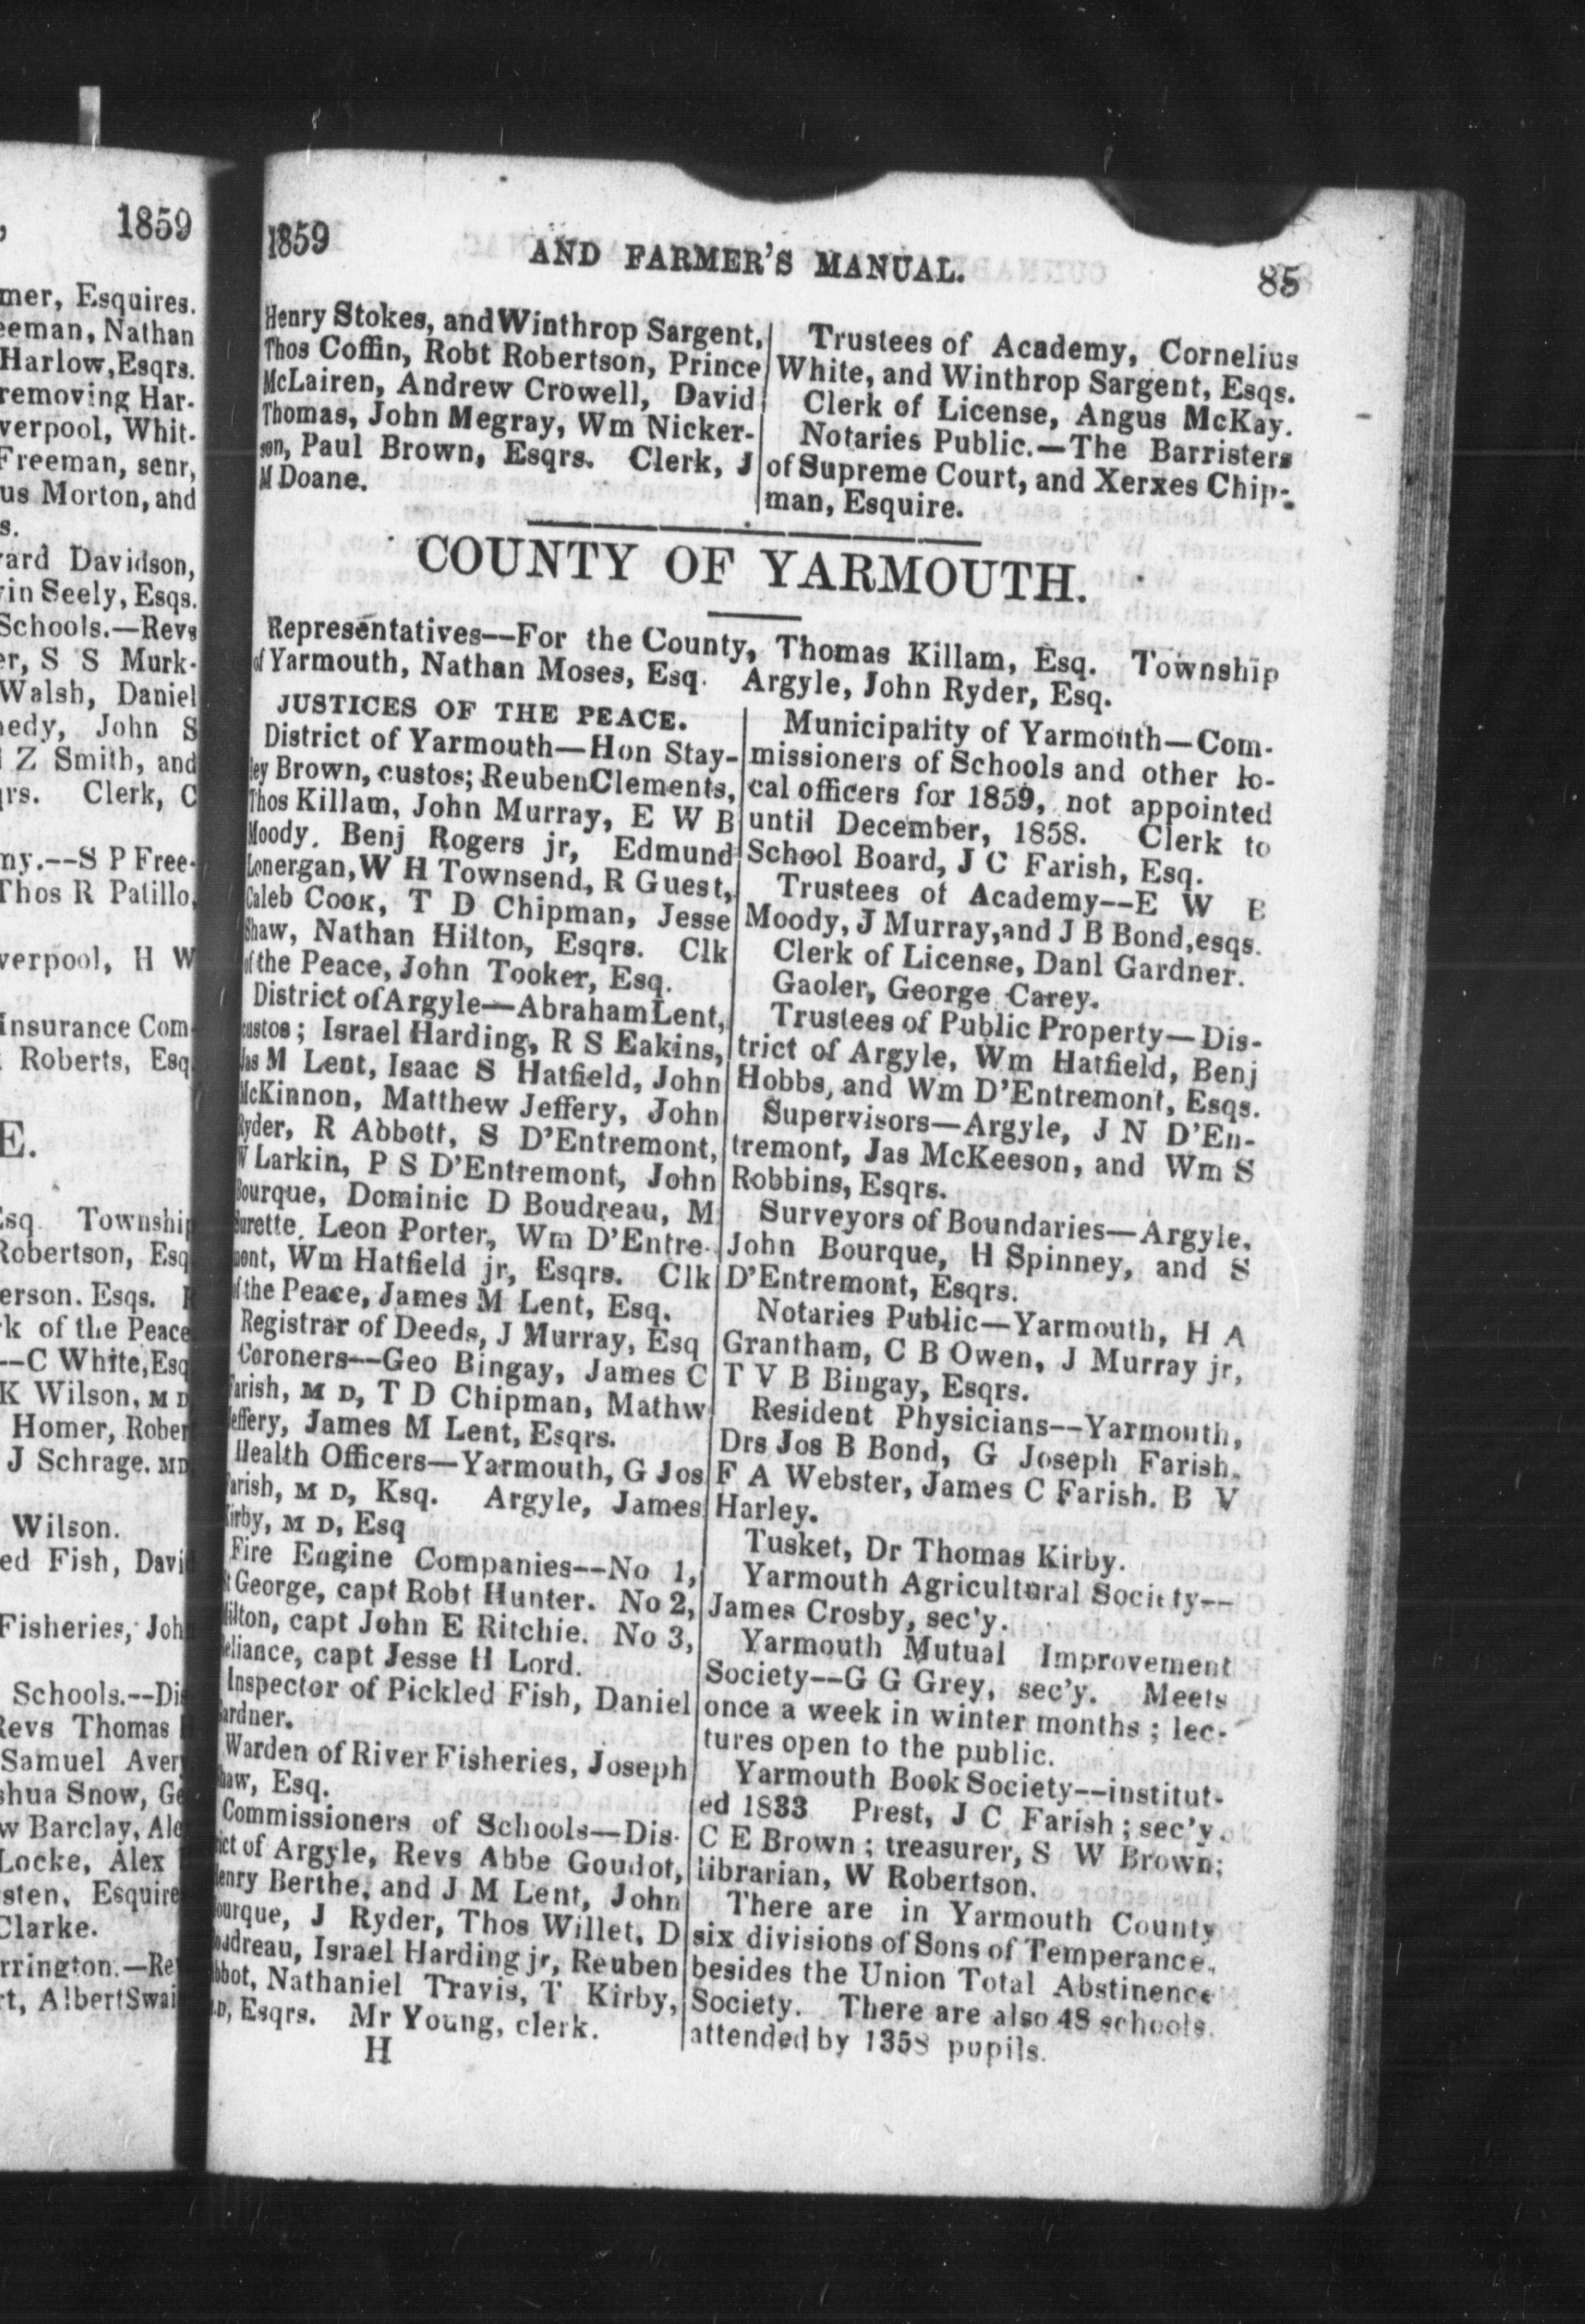 1859
mer, Esquires.
eeman, Nathan
Harlow,Esqrs.
removing Har-
verpool, Whit-
Freeman, senr,
us Morton, and
s.
ard Davidson,
in Seely, Esqs.
Schools.—Revs
er, S S Murk-
Walsh, Daniel
edy, John S
Z Smith, and
rs. Clerk, C
my.--S P Free-
Thos R Patillo,
verpool, H W
Insurance Com
Roberts, Esq
E.
Esq Township
Robertson, Esq
erson. Esqs.
k of the Peace
--C White, Esq
K Wilson, M D
Homer, Rober
J Schrage. MD
Wilson.
ed Fish, Davi
Fisheries, Joh
Schools.--Dis
Revs Thomas
Samuel Avery
shua Snow, Ge
w Barclay, Ale
Locke, Alex
sten, Esquire
Clarke.
rrington.—Re
rt, Albert Swai
1859 AND FARMER'S MANUAL. 85
Henry Stokes, and Winthrop Sargent,
Thos Coffin, Robt Robertson, Prince
McLairen, Andrew Crowell, David
Thomas, John Megray, Wm Nicker-
son, Paul Brown, Esqrs. Clerk, J
M Doane.
Trustees of Academy, Cornelius
White, and Winthrop Sargent, Esqs.
Clerk of License, Angus McKay.
Notaries Public.—The Barristers
of Supreme Court, and Xerxes Chip-
man, Esquire.
COUNTY OF YARMOUTH.
Representatives--For the County, Thomas Killam, Esq. Township
of Yarmouth, Nathan Moses, Esq. Argyle, John Ryder, Esq.
JUSTICES OF THE PEACE.
District of Yarmouth—Hon Stay-
ley Brown, custos; Reuben Clements,
Thos Killam, John Murray, E W B
Moody, Benj Rogers jr, Edmund
Lonergan, W H Townsend, R Guest,
Caleb Cook, T D Chipman, Jesse
Shaw, Nathan Hilton, Esqrs. Clk
of the Peace, John Tooker, Esq.
District of Argyle—Abraham Lent,
custos; Israel Harding, R S Eakins,
Jas M Lent, Isaac S Hatfield, John
McKinnon, Matthew Jeffery, John
Ryder, R Abbott, S D'Entremont,
W Larkin, P S D'Entremont, John
Bourque, Dominic D Boudreau, M
Surette, Leon Porter, Wm D'Entre-
mont, Wm Hatfield jr, Esqrs. Clk
of the Peace, James M Lent, Esq.
Registrar of Deeds, J Murray, Esq
Coroners--Geo Bingay, James C
Farish, M D, T D Chipman, Mathw
Jeffery, James M Lent, Esqrs.
Health Officers—Yarmouth, G Jos
Farish, M D, Ksq. Argyle, James
Kirby, M D, Esq
Fire Engine Companies--No 1,
St George, capt Robt Hunter. No 2,
Milton, capt John E Ritchie. No 3,
Reliance, capt Jesse H Lord.
Inspector of Pickled Fish, Daniel
Gardner.
Warden of River Fisheries, Joseph
Shaw, Esq.
Commissioners of Schools—Dis-
trict of Argyle, Revs Abbe Goudot,
Henry Berthe, and J M Lent, John
Bourque, J Ryder, Thos Willet, D
Boudreau, Israel Harding jr, Reuben
Abbot, Nathaniel Travis, T Kirby,
M.D, Esqrs. Mr Young, clerk.
H
Municipality of Yarmouth—Com-
missioners of Schools and other lo-
cal officers for 1859, not appointed
until December, 1858. Clerk to
School Board, J C Farish, Esq.
Trustees of Academy--E W B
Moody, J Murray, and J B Bond, esqs.
Clerk of License, Danl Gardner.
Gaoler, George Carey.
Trustees of Public Property—Dis-
trict of Argyle, Wm Hatfield, Benj
Hobbs, and Wm D'Entremont, Esqs.
Supervisors—Argyle, J N D'En-
tremont, Jas McKeeson, and Wm S
Robbins, Esqrs.
Surveyors of Boundaries—Argyle,
John Bourque, H Spinney, and S
D'Entremont, Esqrs.
Notaries Public—Yarmouth, H A
Grantham, C B Owen, J Murray jr,
T V B Bingay, Esqrs.
Resident Physicians--Yarmouth,
Drs Jos B Bond, G Joseph Farish,
F A Webster, James C Farish. B V
Harley.
Tusket, Dr Thomas Kirby.
Yarmouth Agricultural Society--
James Crosby, sec'y.
Yarmouth Mutual Improvement
Society--G G Grey, sec'y. Meets
once a week in winter months; lec-
tures open to the public.
Yarmouth Book Society--institut-
ed 1833 Prest, J C Farish; sec'y.
C E Brown; treasurer, S W Brown;
librarian, W Robertson.
There are in Yarmouth County
six divisions of Sons of Temperance,
besides the Union Total Abstinence
Society. There are also 48 schools
attended by 1358 pupils.